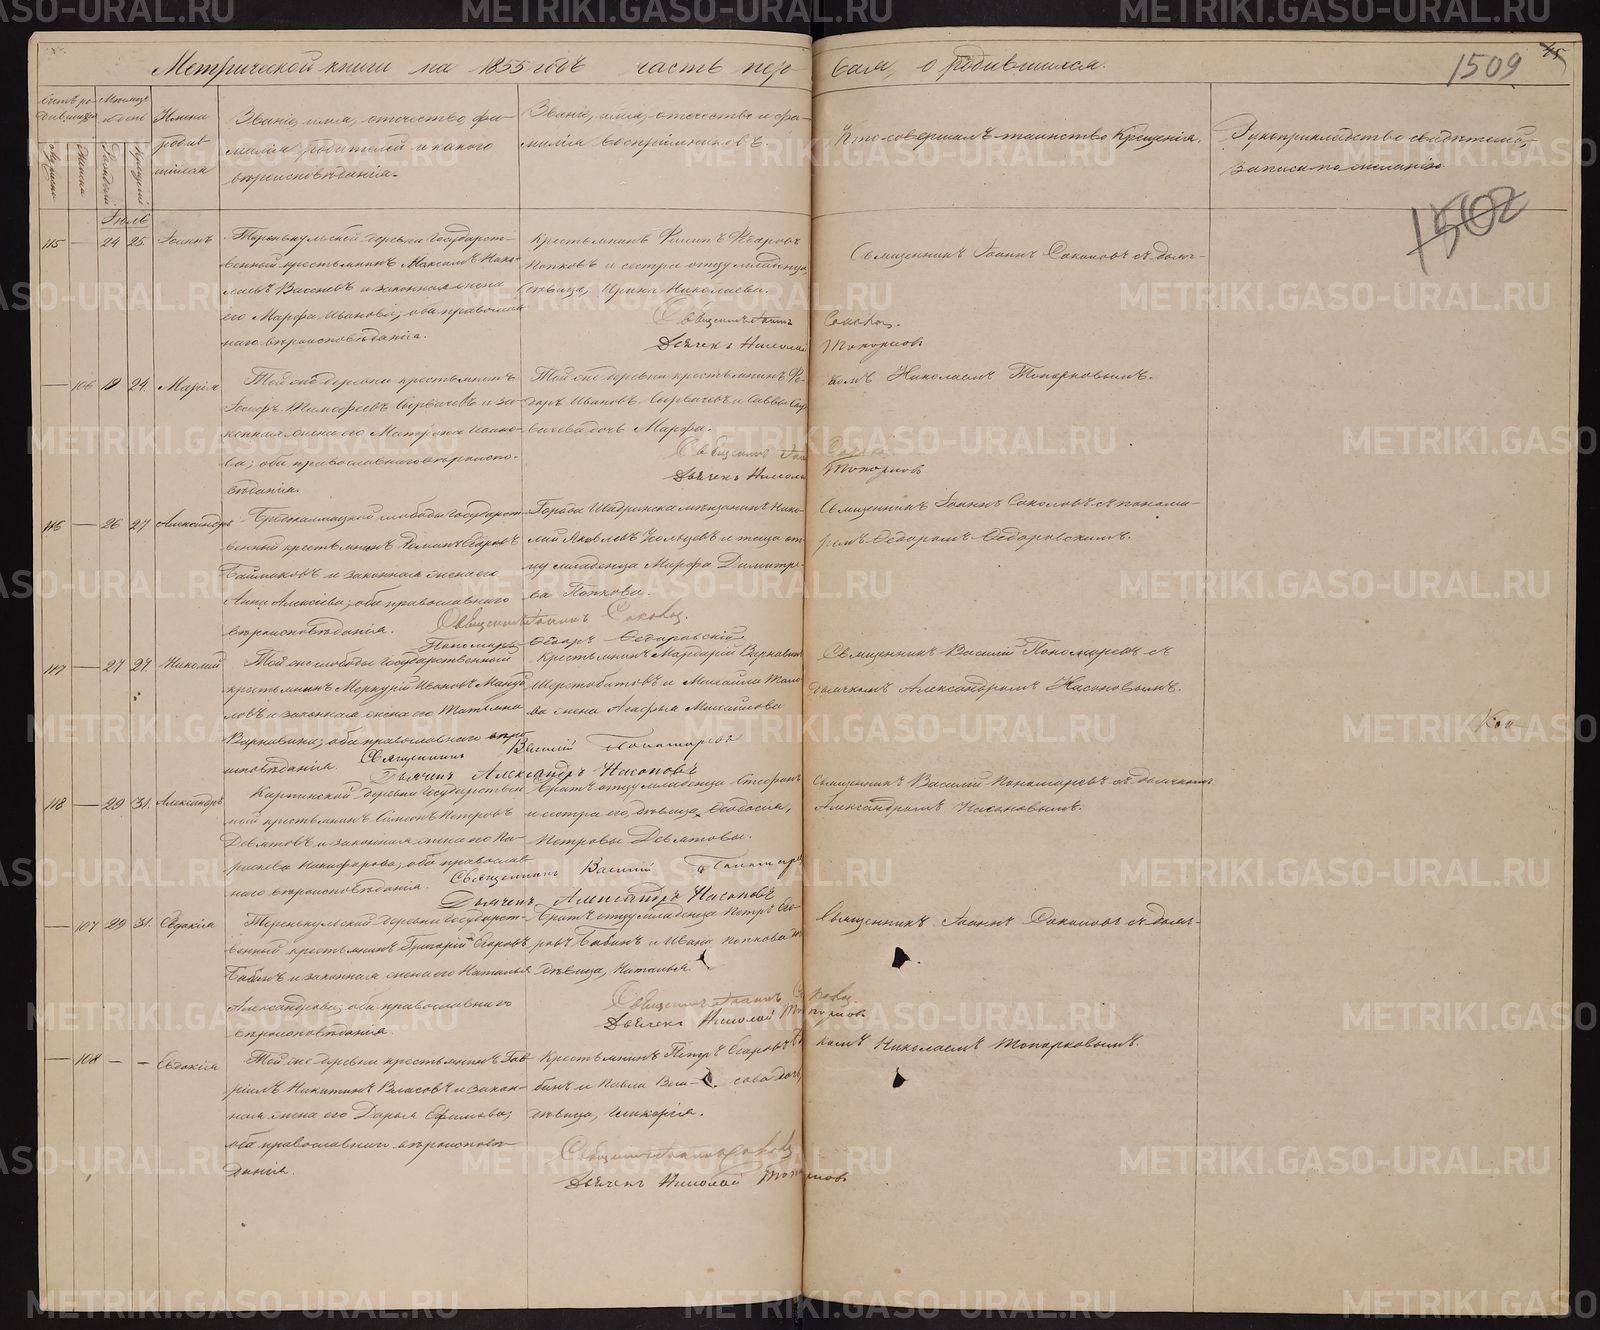 Метрической книги на 1855 годъ часть пер-
вая, о родившихся.
1509
45
1502
Счетъ ро-
дившихся
Мужеска
Женска
Мѣсяцъ
и день
Рожденія
Крещенія
Имена
родив-
шихся
Званіе, имя, отечество, фа-
милія родителей и какого
вѣроисповѣданія.
Званіе, имя, отечество и фа-
милія воспріемниковъ.
Кто совершалъ таинство Крещенія.
Рукоприкладство свидѣтелей
записи по желанію.
Іюль
115 — 24 25. Іоаннъ
деревни Государст-
венный крестьянинъ Максимъ Нико-
лаевъ и законная жена
его Марфа Иванова; оба православ-
наго вѣроисповѣданія.
Крестьянинъ Филипъ
Попковъ и сестра отцу младенца,
дѣвица, Ирина Николаева.
Священникъ Іоаннъ Соколовъ съ дьяч-
Священникъ Іоаннъ Соколовъ.
Дьячекъ Николай Топорковъ
— 106 24. Марія
Той же деревни крестьянинъ
Іосифъ Тимофеевъ и за-
конная жена его Матрона Ивано-
ва; оба православнаго вѣроиспо-
вѣданія.
Той же деревни крестьянинъ
Ивановъ и Саввы
дочь Марфа.
комъ Николаемъ Топорковымъ.
Священникъ Іоаннъ
Дьячекъ Николай Топорковъ
116 — 26 27 Александръ
слободы Государст-
венный крестьянинъ Романъ Егоровъ
и законная жена его
Анна Алексѣева; оба православнаго
вѣроисповѣданія.
Города Шадринска мѣщанинъ Нико-
лай Яковлевъ и теща от-
цу младенца Марфа Димитріе-
ва Попкова.
Священникъ Іоаннъ Соколовъ съ понома-
ремъ Ѳедоромъ Ѳедоровскимъ.
Священникъ Іоаннъ Соколовъ.
Пономарь Ѳедоръ Ѳедоровскій
117 — 27 27. Николай
Той же слободы Государственный
крестьянинъ Меркурій Ивановъ
и законная жена его Татьяна
Варнавина; оба православнаго вѣро-
исповѣданія.
Крестьянинъ Мардарій Варнавинъ
Шерстобитовъ и Михаила
жена Агафья Михайлова
Священникъ Василій Пономаревъ съ
дьячкомъ Александромъ Насоновымъ.
Священникъ Василій Пономаревъ
Дьячекъ Александръ Насоновъ
118 — 29 31. Александръ
деревни Государствен-
ный крестьянинъ Симеонъ Петровъ
Девятовъ и законная жена его Па-
раскева Никифорова; оба православ-
наго вѣроисповѣданія.
Братъ отцу младенца Стефанъ
и сестра его, дѣвица, Ѳеодосія,
Петровы Девятовы.
Священникъ Василій Пономаревъ съ дьячкомъ
Александромъ Насоновымъ.
Священникъ Василій Пономаревъ
Дьячекъ Александръ Насоновъ
— 107 29 31. Евдокія
деревни Государст-
венный крестьянинъ Григорій Егоровъ
Бабинъ и законная жена его Наталья
Александрова; оба православнаго
вѣроисповѣданія.
Братъ отцу младенца Петръ Его-
ровъ Бабинъ и Ивана Попкова
дѣвица, Наталья.
Священникъ Іоаннъ Соколовъ съ дьяч-
Священникъ Іоаннъ Соколовъ.
Дьячекъ Николай Топорковъ
— 108 — — Евдокія
Той же деревни крестьянинъ Гав-
ріилъ Никитинъ Власовъ и закон-
ная жена его Дарья Ефимова;
оба православнаго вѣроисповѣ-
данія.
Крестьянинъ Петръ Егоровъ
Бабинъ и Павла Власова дочь,
дѣвица, Гликерія.
комъ Николаемъ Топорковымъ.
Священникъ Іоаннъ Соколовъ
Дьячекъ Николай Топорковъ
METRIKI.GASO-URAL.RU